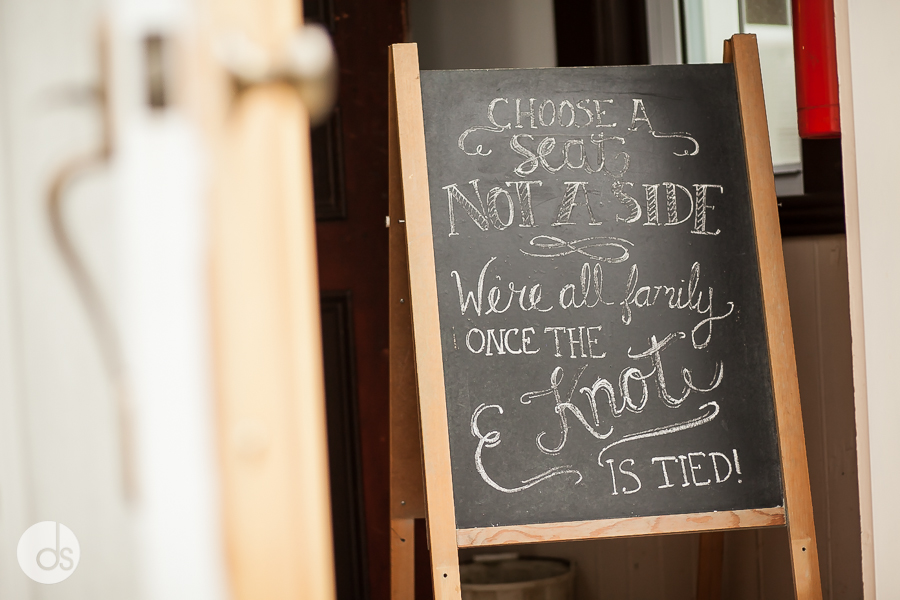 CHOOSE A
seat
NOT A SIDE
We're all family
ONCE THE
Knot
IS TIED!
ds